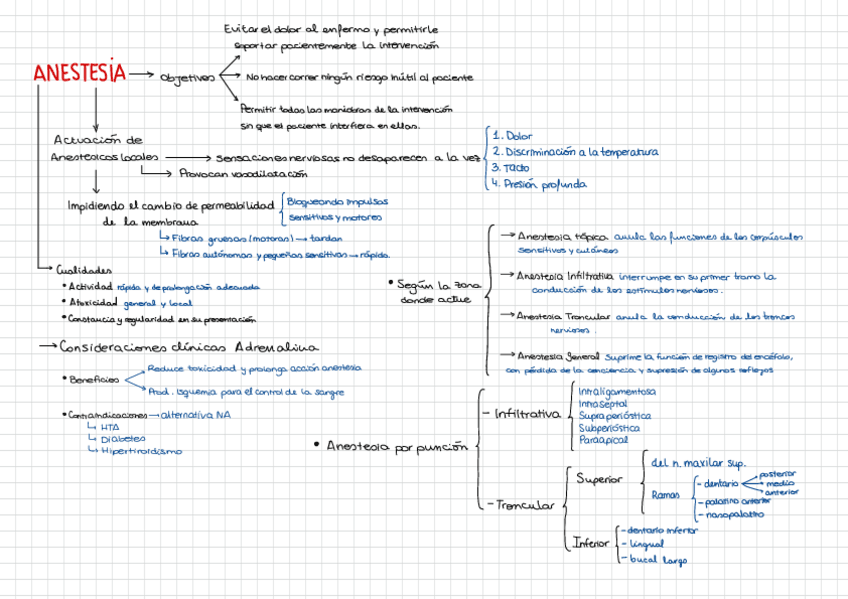 Evitar el dolor al enfermo y permitirle
soportar pacientemente la intervención
ANESTESIA → Objetivos
No hacer correr ningún riesgo inútil al paciente
Permitir todas las maniobras de la intervención
sin que el paciente interfiera en ellas.
Actuación de
Anestésicos locales → Sensaciones nerviosas no desaparecen a la vez
1. Dolor
2. Discriminación a la temperatura
3. Tacto
4. Presión profunda
↳ Provocan vasodilatación
Impidiendo el cambio de permeabilidad
de la membrana
Bloqueando impulsos
sensitivos y motores
↳ Fibras gruesas (motoras) → tardan
↳ Fibras autónomas y pequeñas sensitivas → rápida
→ Cualidades
• Actividad rápida y de prolongación adecuada
• Atoxicidad general y local
• Constancia y regularidad en su presentación
→ Consideraciones clínicas Adrenalina
• Beneficios
Reduce toxicidad y prolonga acción anestesia
Prod. isquemia para el control de la sangre
• Contraindicaciones → alternativa NA
↳ HTA
↳ Diabetes
↳ Hipertiroidismo
• Según la zona
donde actúe
→ Anestesia tópica anula las funciones de los corpúsculos
sensitivos y cutáneos
→ Anestesia Infiltrativa interrumpe en su primer tramo la
conducción de los estímulos nerviosos.
→ Anestesia Troncular anula la conducción de los troncos
nerviosos.
→ Anestesia General Suprime la función de registro del encéfalo,
con pérdida de la conciencia y supresión de algunos reflejos
• Anestesia por punción
- Infiltrativa
Intraligamentosa
Intraseptal
Supraperióstica
Subperióstica
Paraapical
- Troncular
Superior
del n. maxilar sup.
Ramas
- dentario
posterior
medio
anterior
- palatino anterior
- nasopalatino
Inferior
- dentario inferior
- lingual
- bucal largo